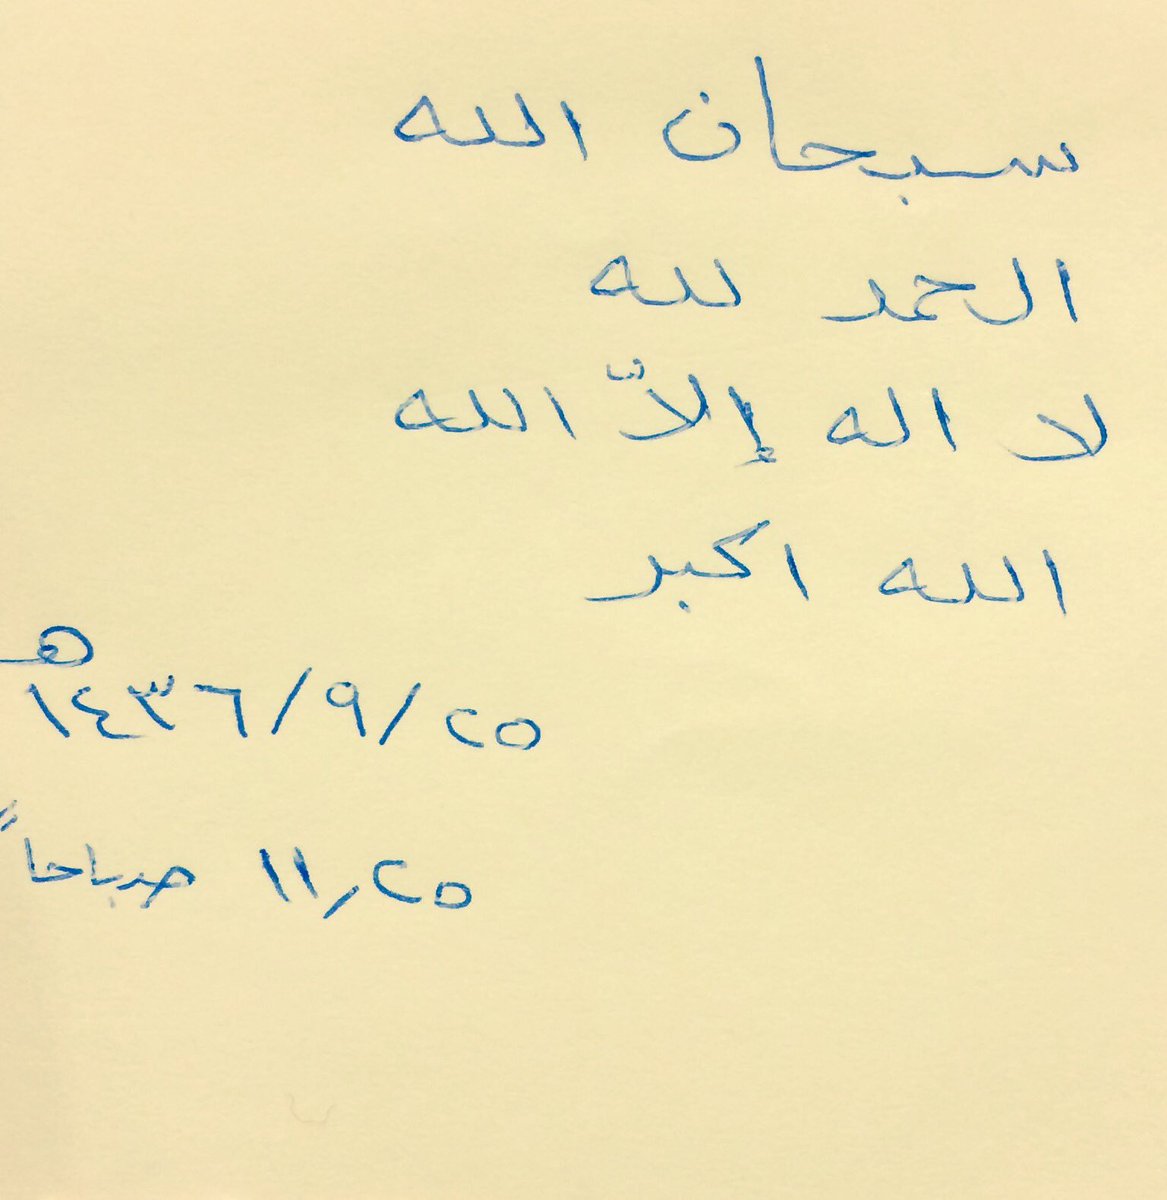 سبحان الله
الحمد لله
لا اله إلاّ الله
الله اكبر
١٤٣٦/٩/٢٥ هـ
١١,٢٥ صباحاً